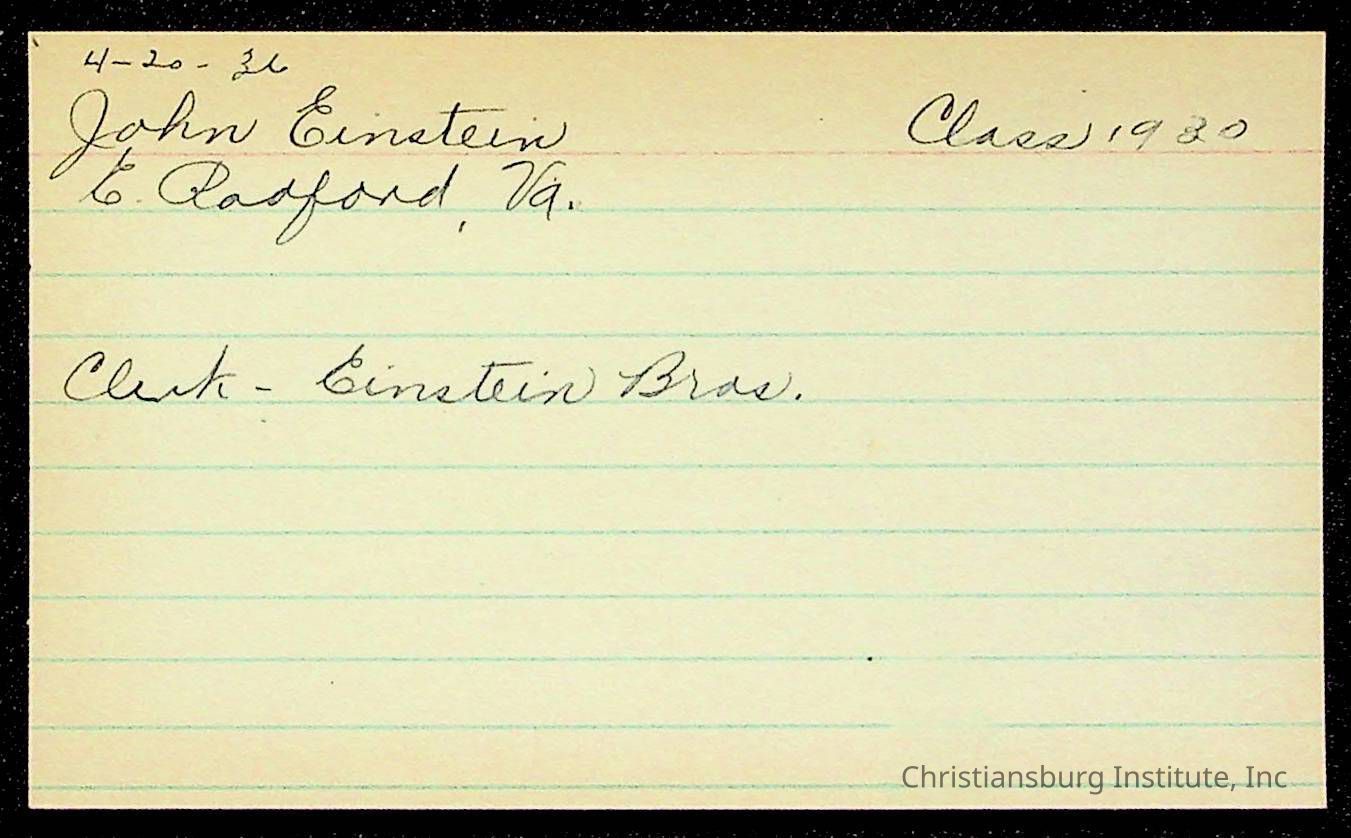 4-20-36
John Einstein Class 1930
E. Radford, Va.
Clerk - Einstein Bros.
Christiansburg Institute, Inc